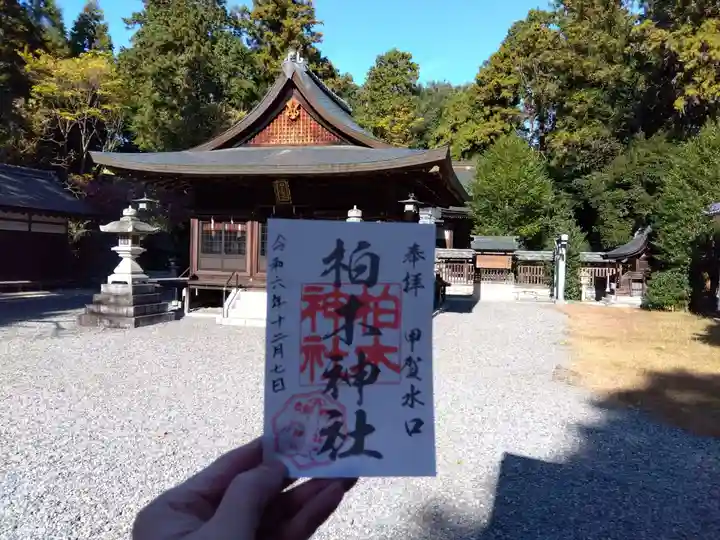 奉拝 甲賀水口
柏木神社
柏木神社
令和六年十二月七日